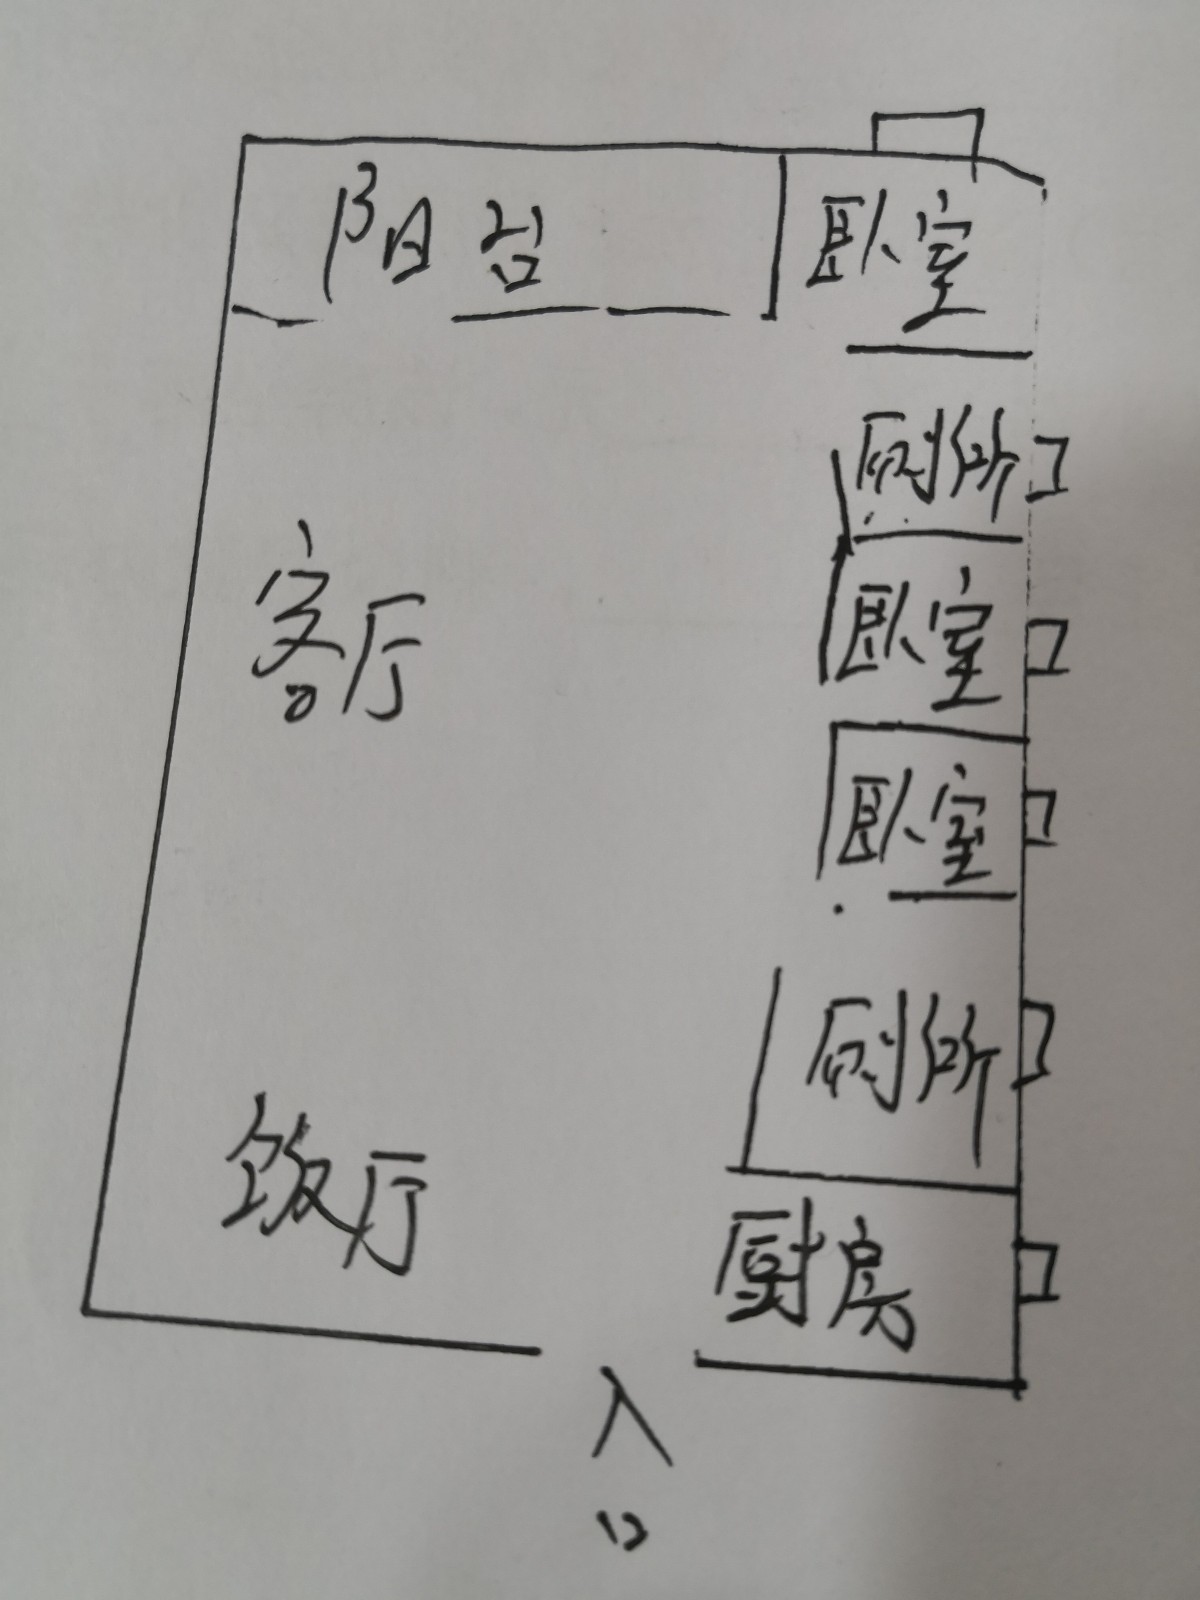 阳台
卧室
厕所
客厅
卧室
卧室
厕所
饭厅
厨房
入
口